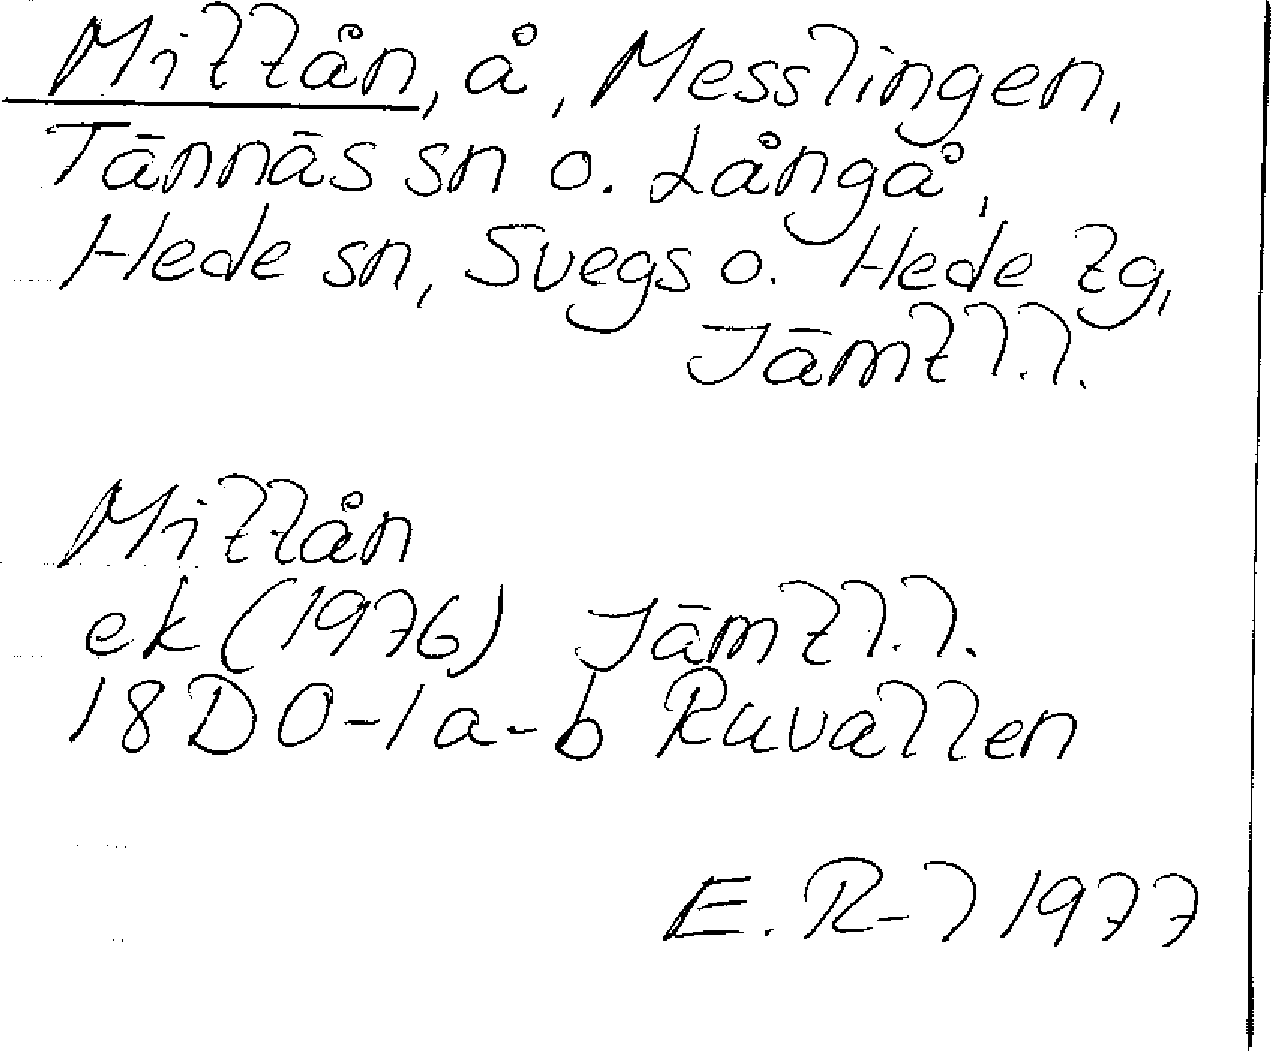 Mittån, å, Messlingen,
Tännäs sn o. Långå,
Hede sn, Svegs o. Hede tg,
Jämtl.l.
Mittån
ek (1976) Jämtl.l.
18D 0-1 a-b Ruvallen
E. R-l 1977